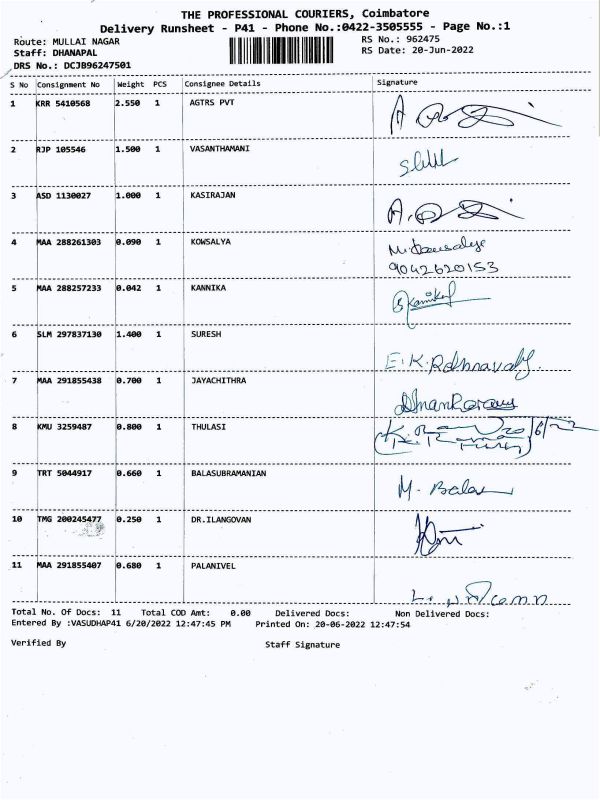 THE PROFESSIONAL COURIERS, Coimbatore
Delivery Runsheet - P41 - Phone No.:0422-3505555 - Page No.:1
Route: MULLAI NAGAR RS No.: 962475
Staff: DHANAPAL RS Date: 20-Jun-2022
DRS No.: DCJB96247501
S No Consignment No Weight PCS Consignee Details Signature
1 KRR 5410568 2.550 1 AGTRS PVT
2 RJP 105546 1.500 1 VASANTHAMANI
3 ASD 1130027 1.000 1 KASIRAJAN
4 MAA 288261303 0.090 1 KOWSALYA
9042620153
5 MAA 288257233 0.042 1 KANNIKA Kannika
6 SLM 297837130 1.400 1 SURESH
E.K.
7 MAA 291855438 0.700 1 JAYACHITHRA
8 KMU 3259487 0.800 1 THULASI 20/6/22
9 TRT 5044917 0.660 1 BALASUBRAMANIAN
M. Bala
10 TMG 200245477 0.250 1 DR.ILANGOVAN
11 MAA 291855407 0.680 1 PALANIVEL
Total No. Of Docs: 11 Total COD Amt: 0.00 Delivered Docs: Non Delivered Docs:
Entered By :VASUDHAP41 6/20/2022 12:47:45 PM Printed On: 20-06-2022 12:47:54
Verified By Staff Signature